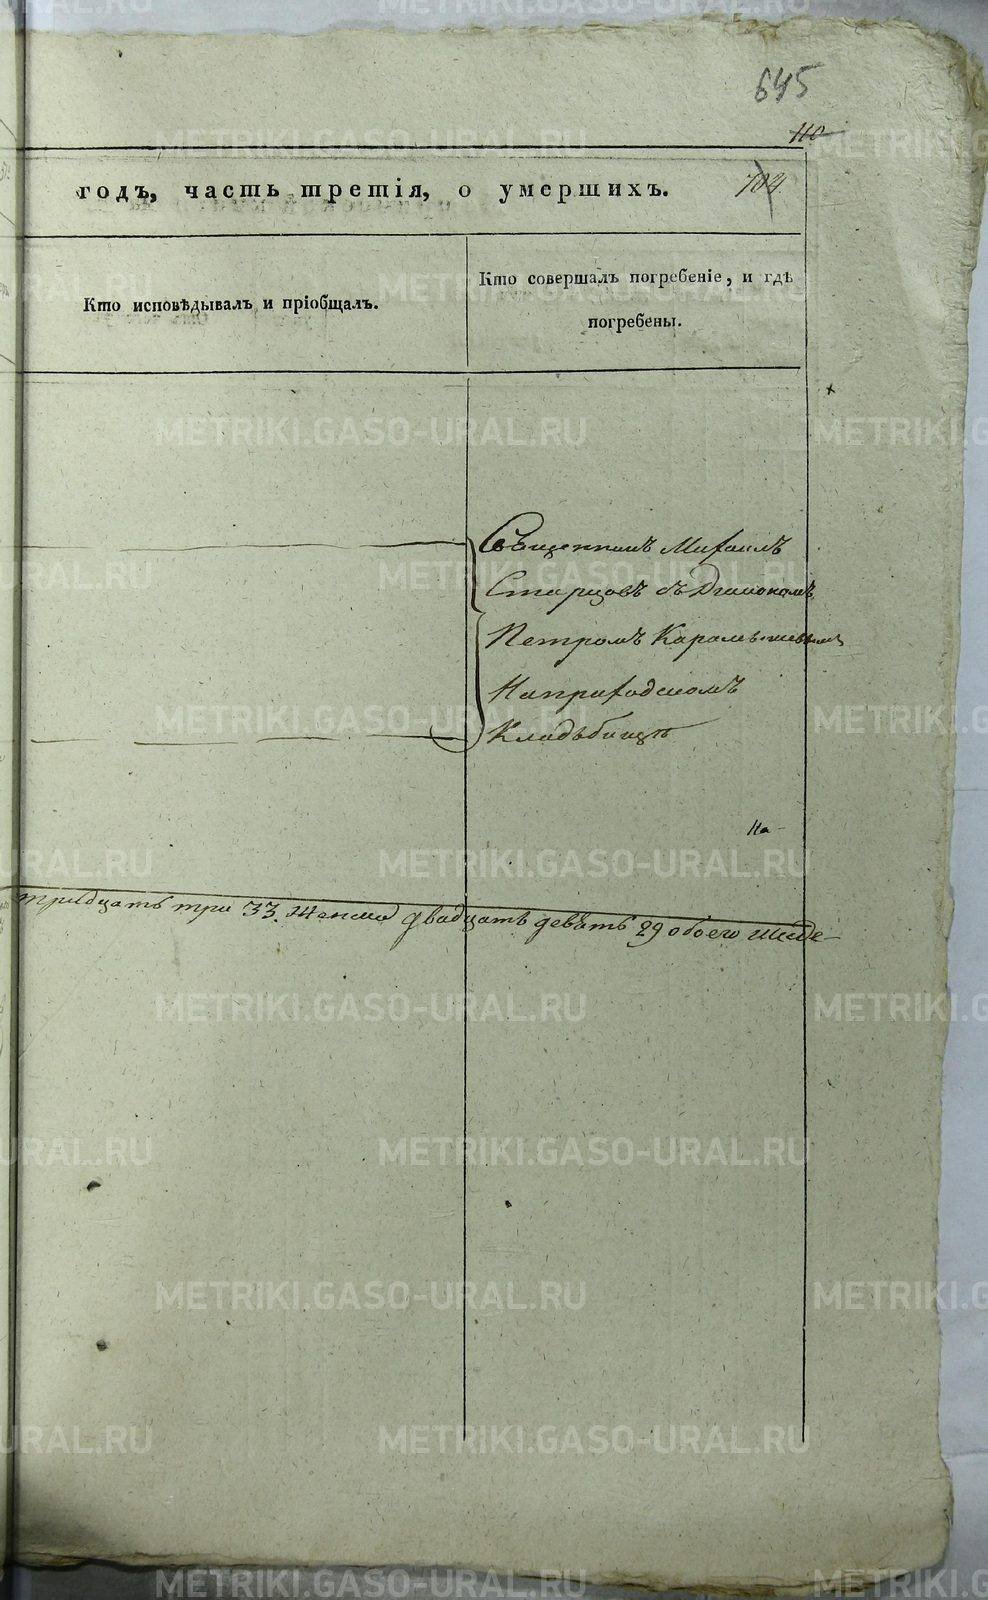 645
110
704
годъ, часть третія, о умершихъ.
Кто исповѣдывалъ и пріобщалъ.
Кто совершалъ погребеніе, и гдѣ
погребены.
Священникъ Михаилъ
Старцовъ съ Диякономъ
Петромъ Карамышевымъ
На приходскомъ
Кладьбищѣ
На
тридцать три 33. Женска двадцать девять 29 обоего
METRIKI.GASO-URAL.RU